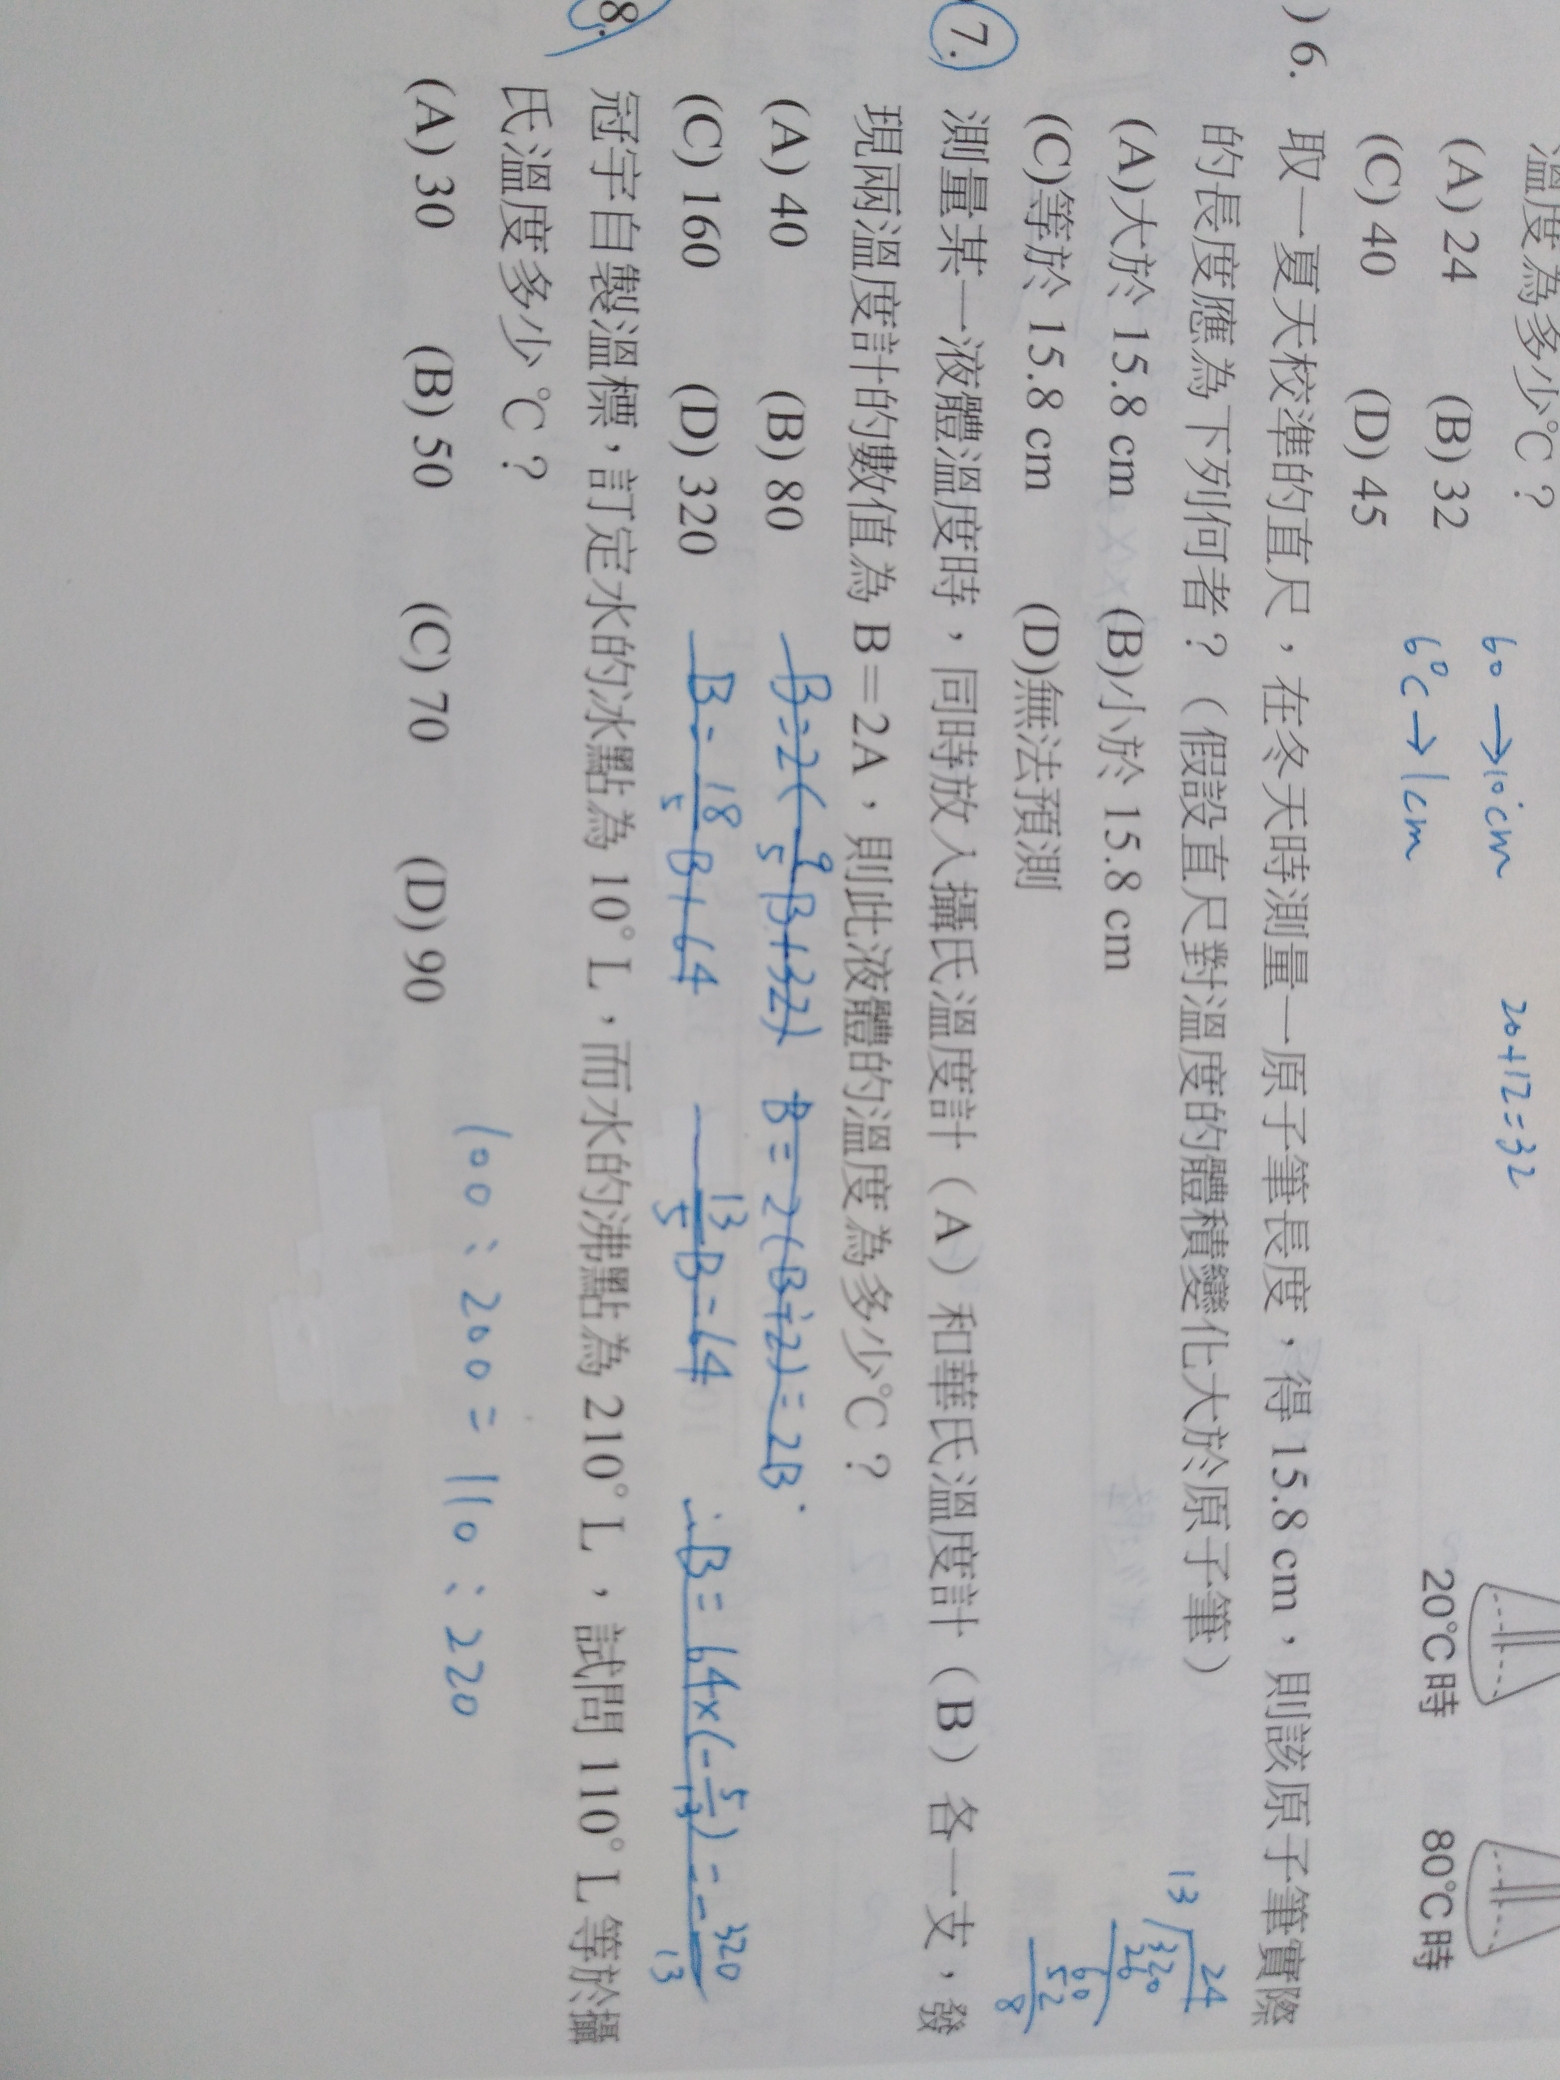 溫度為多少℃？
60→10cm
20+12=32
(A) 24 (B) 32
6℃→1cm
(C) 40 (D) 45
20℃時 80℃時
) 6. 取一夏天校準的直尺，在冬天時測量一原子筆長度，得 15.8 cm，則該原子筆實際
的長度應為下列何者？（假設直尺對溫度的體積變化大於原子筆）
(A)大於 15.8 cm (B)小於 15.8 cm
(C)等於 15.8 cm (D)無法預測
24
13 320
26
60
52
8
7. 測量某一液體溫度時，同時放入攝氏溫度計（A）和華氏溫度計（B）各一支，發
現兩溫度計的數值為 B＝2A，則此液體的溫度為多少℃？
(A) 40 (B) 80
B=2(9/5B+32) B=2(B+2)=2B
(C) 160 (D) 320
B=18/5B+64 -13/5B=64 ∴B=64×(-5/13)=-320/13
8. 冠宇自製溫標，訂定水的冰點為 10°L，而水的沸點為 210°L，試問 110°L 等於攝
氏溫度多少℃？
(A) 30 (B) 50 (C) 70 (D) 90
100：200=110：220